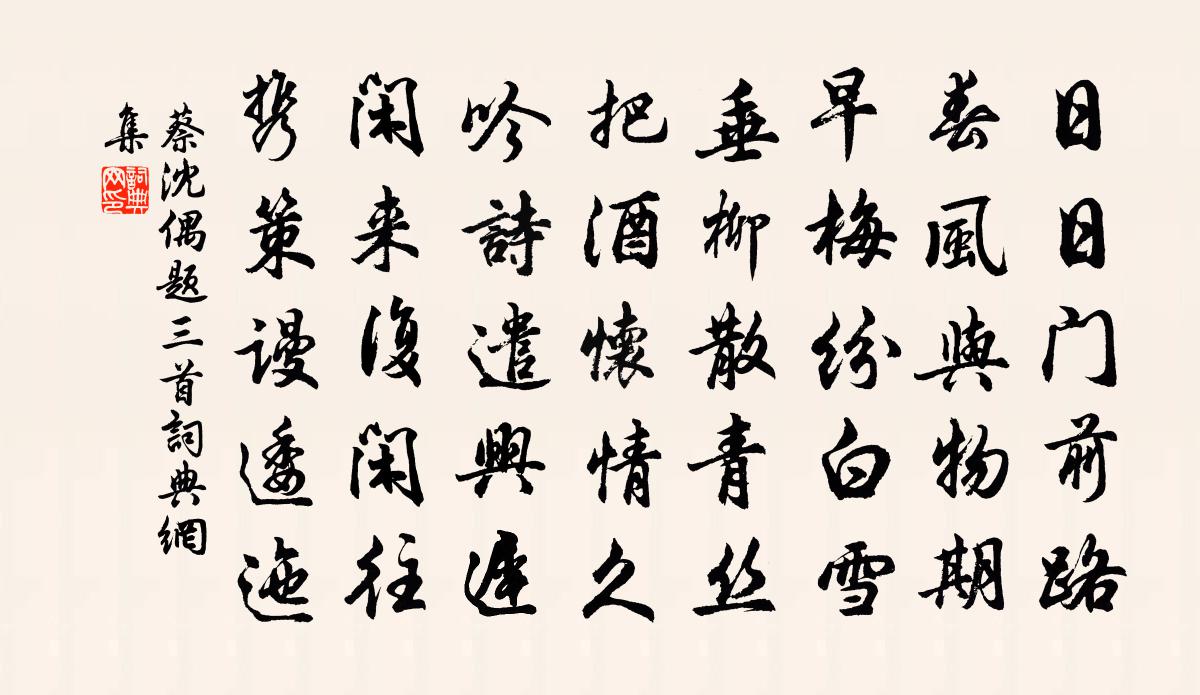 日日门前路
春風與物期
早梅紛白雪
垂柳散青丝
把酒懷情久
吟詩遣興遲
閑来復閑往
携策謾逶迤
蔡沈偶题三首詞典網
集
詞典网印